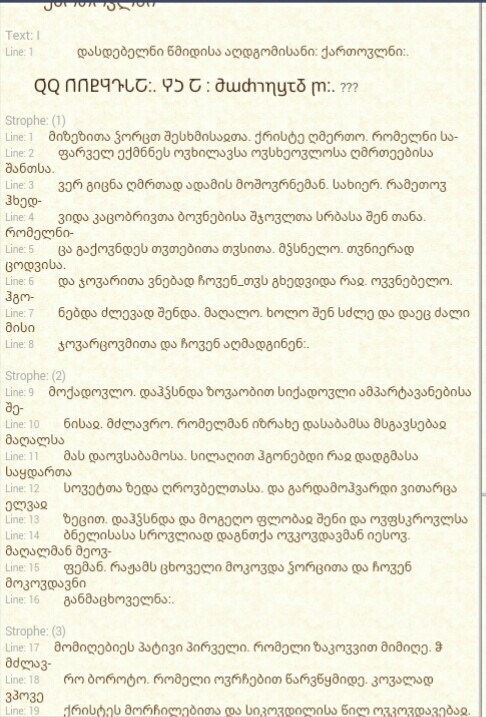 Text: I
Line: 1 დასდებელნი წმიდისა აღდგომისანი: ქართოჳლნი:.
???
Strophe: (1)
Line: 1 მიზეზითა ჴორცთ შესხმისაჲთა. ქრისტე ღმერთო. რომელნი სა-
Line: 2 ფარველ ექმნნეს ოჳხილავსა ოჳსხეოჳლოსა ღმრთეებისა
შანთსა.
Line: 3 ვერ გიცნა ღმრთად ადამის მოშოჳრნემან. სახიერ. რამეთოჳ
ჰხედ-
Line: 4 ვიდა კაცობრივთა ბოჳნებისა შჯოჳლთა სრბასა შენ თანა.
რომელნი-
Line: 5 ცა გაქოჳნდეს თჳთებითა თჳსითა. მჴსნელო. თჳნიერად
ცოდვისა.
Line: 6 და ჯოჳარითა ვნებად ჩოჳენ_თჳს გხედვიდა რაჲ. ოჳვნებელო.
ჰგო-
Line: 7 ნებდა ძლევად შენდა. მაღალო. ხოლო შენ სძლე და დაეც ძალი
მისი
Line: 8 ჯოჳარცოჳმითა და ჩოჳენ აღმადგინენ:.
Strophe: (2)
Line: 9 მოქადოჳლო. დაჰჴსნდა ზოჳაობით სიქადოჳლი ამპარტავანებისა
შე-
Line: 10 ნისაჲ. მძლავრო. რომელმან იზრახე დასაბამსა მსგავსებაჲ
მაღალსა
Line: 11 მას დაოჳსაბამოსა. სილაღით ჰგონებდი რაჲ დადგმასა
საყდართა
Line: 12 სოჳეტთა ზედა ღროჳბელთასა. და გარდამოჰვარდი ვითარცა
ელვაჲ
Line: 13 ზეცით. დაჰჴსნდა და მოგეღო ფლობაჲ შენი და ოჳფსკროჳლსა
Line: 14 ბნელისასა სროჳლიად დაგნთქა ოჳკოჳდავმან იესოჳ.
მაღალმან მეოჳ-
Line: 15 ფემან. რაჟამს ცხოველი მოკოჳდა ჴორცითა და ჩოჳენ
მოკოჳდავნი
Line: 16 განმაცხოველნა:.
Strophe: (3)
Line: 17 მომიღებიეს პატივი პირველი. რომელი ზაკოჳვით მიმიღე. ჵ
მძლავ-
Line: 18 რო ბოროტო. რომელი ოჳრჩებით წარვწყმიდე. კოჳალად
ვპოვე
Line: 19 ქრისტეს მორჩილებითა და სიკოჳდილისა წილ ოჳკოჳდავებაჲ.